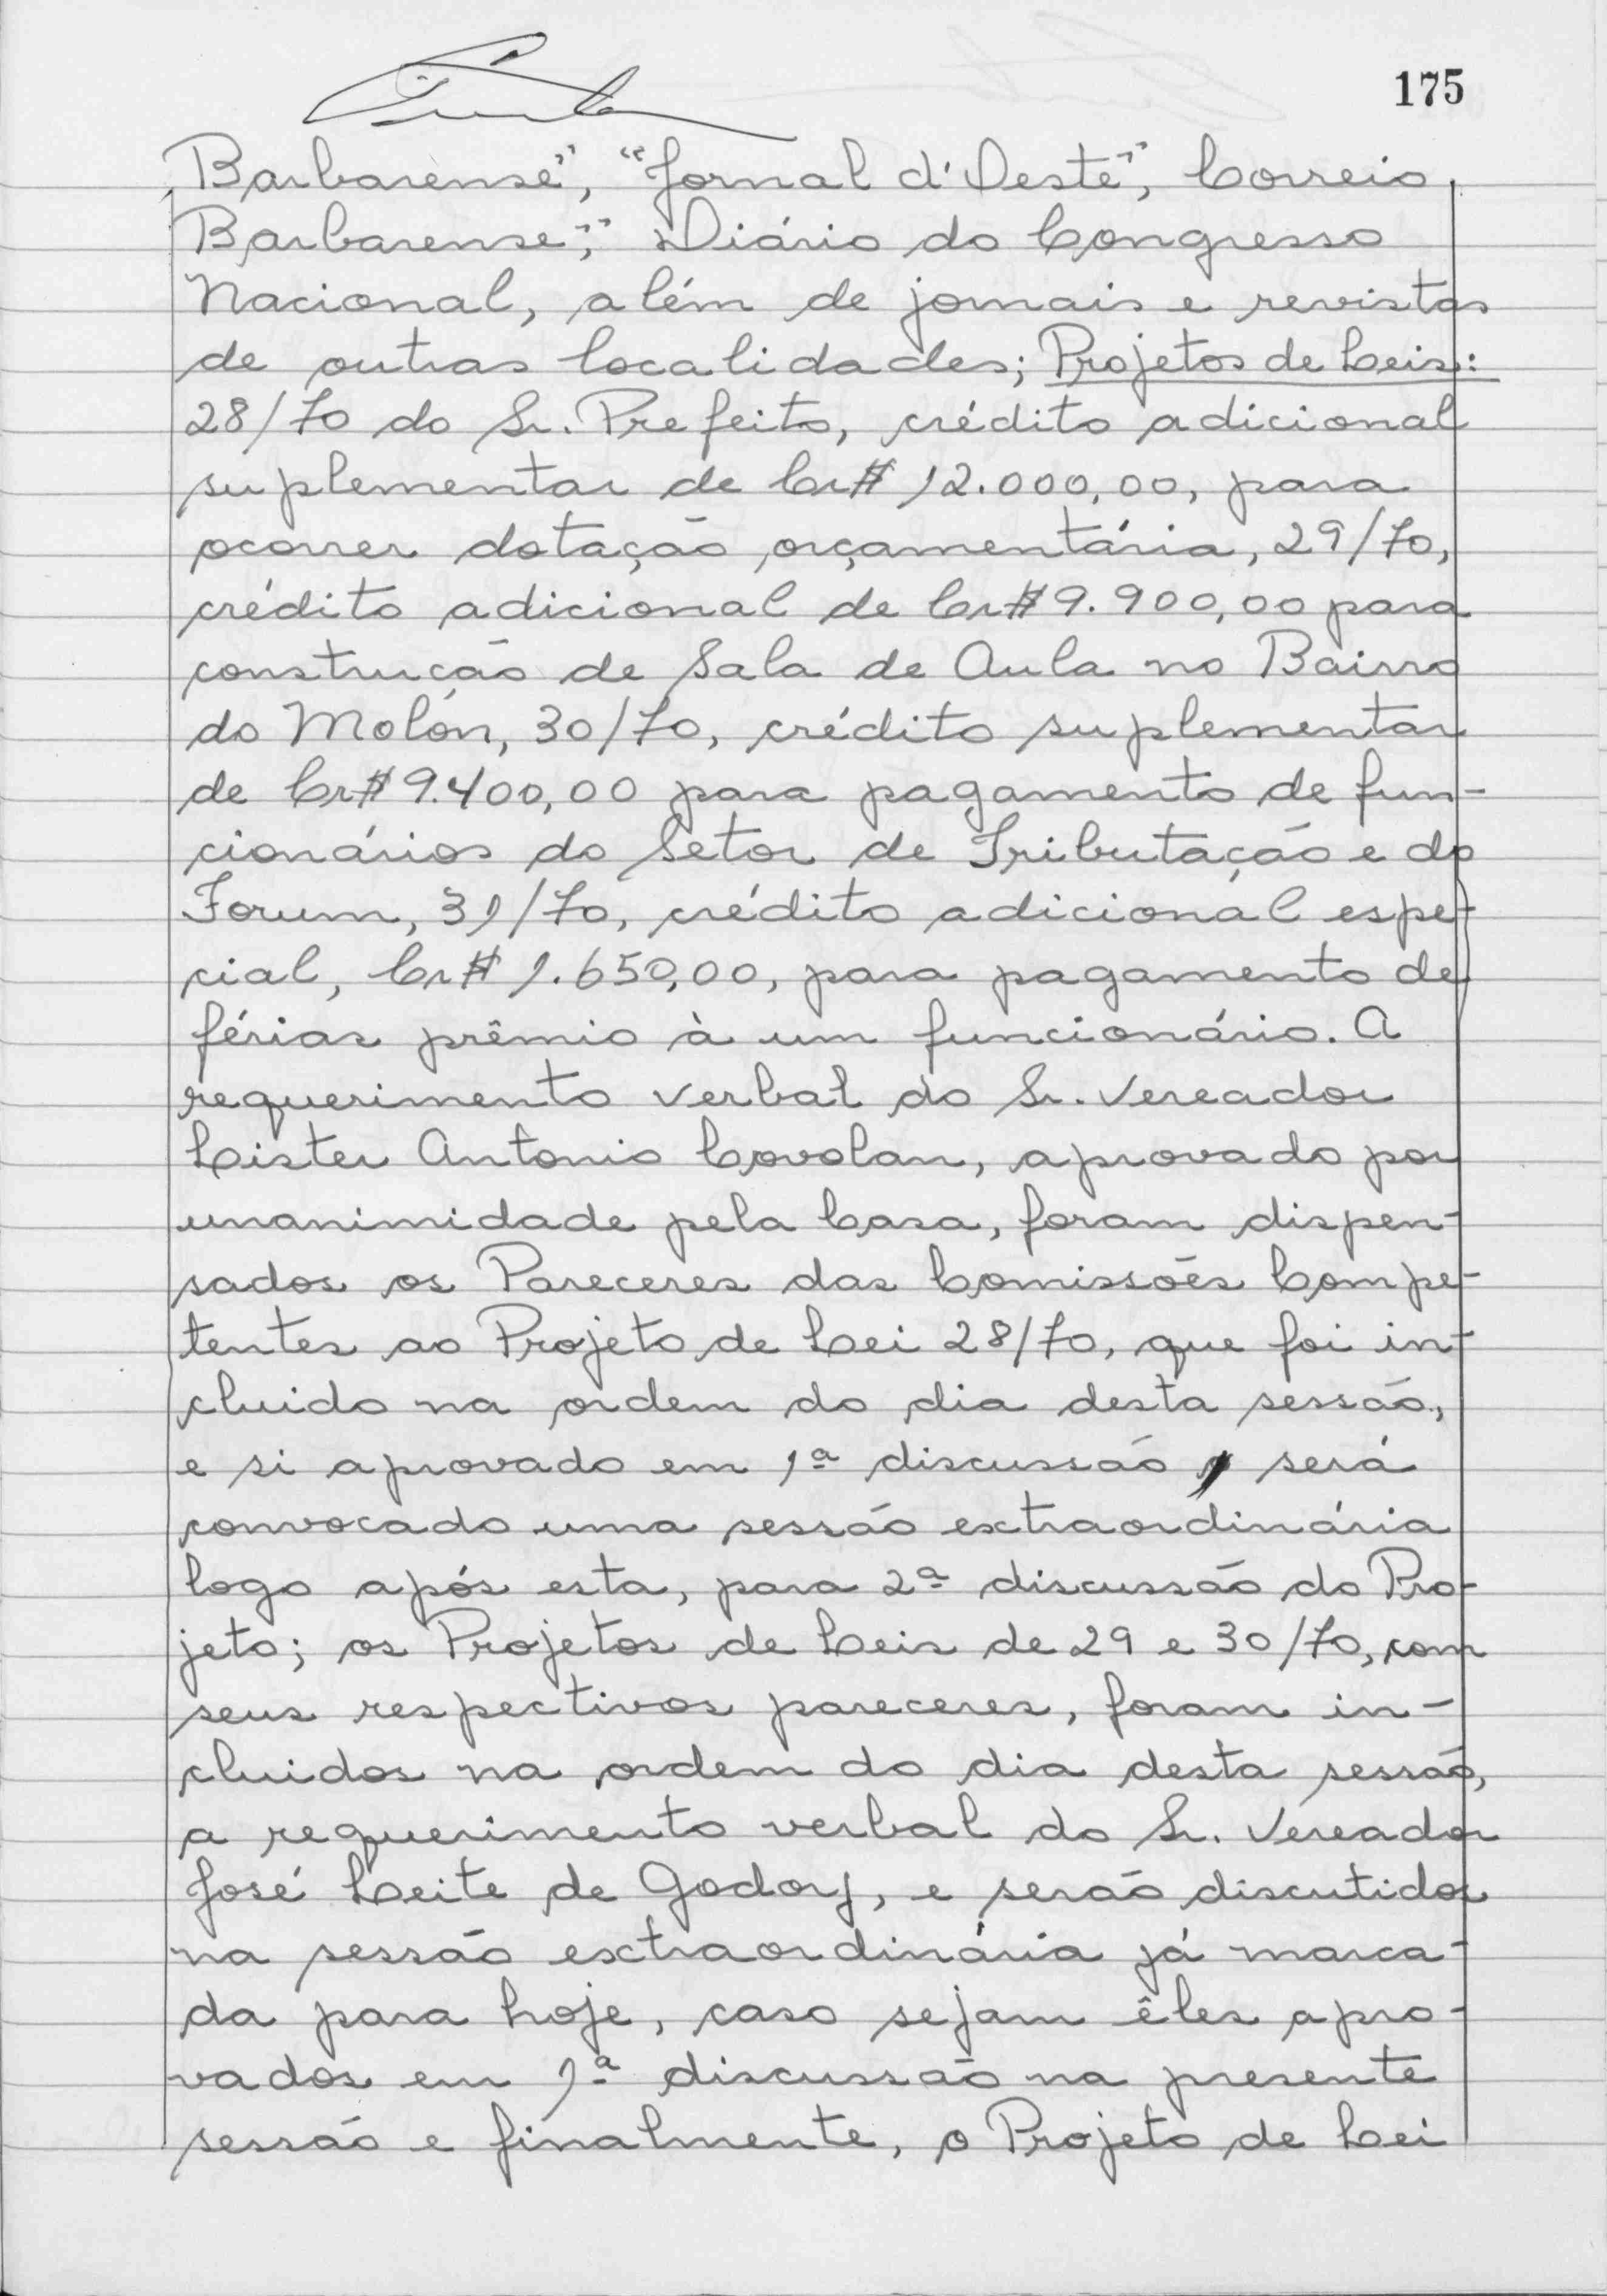 175
Barbarense", "Jornal d'Oeste", Correio
Barbarense", Diário do Congresso
Nacional, além de jornais e revistas
de outras localidades; Projetos de Leis:
28/70 do Sr. Prefeito, crédito adicional
suplementar de Cr$ 12.000,00, para
ocorrer dotação orçamentária, 29/70,
crédito adicional de Cr$ 9.900,00 para
construção de Sala de Aula no Bairro
do Molón, 30/70, crédito suplementar
de Cr$ 9.400,00 para pagamento de fun-
cionários do Setor de Tributação e do
Forum, 31/70, crédito adicional espe-
cial, Cr$ 1.650,00, para pagamento de
férias prêmio à um funcionário. A
requerimento verbal do Sr. Vereador
Lister Antonio Covolan, aprovado por
unanimidade pela Casa, foram dispen-
sados os Pareceres das Comissões Compe-
tentes ao Projeto de Lei 28/70, que foi in-
cluido na ordem do dia desta sessão,
e si aprovado em 1ª discussão, será
convocado uma sessão extraordinária
logo após esta, para 2ª discussão do Pro-
jeto; os Projetos de Leis de 29 e 30/70, com
seus respectivos pareceres, foram in-
cluidos na ordem do dia desta sessão,
a requerimento verbal do Sr. Vereador
José Leite de Godoy, e serão discutidos
na sessão extraordinária já marca-
da para hoje, caso sejam êles apro-
vados em 1ª discussão na presente
sessão e finalmente, o Projeto de Lei